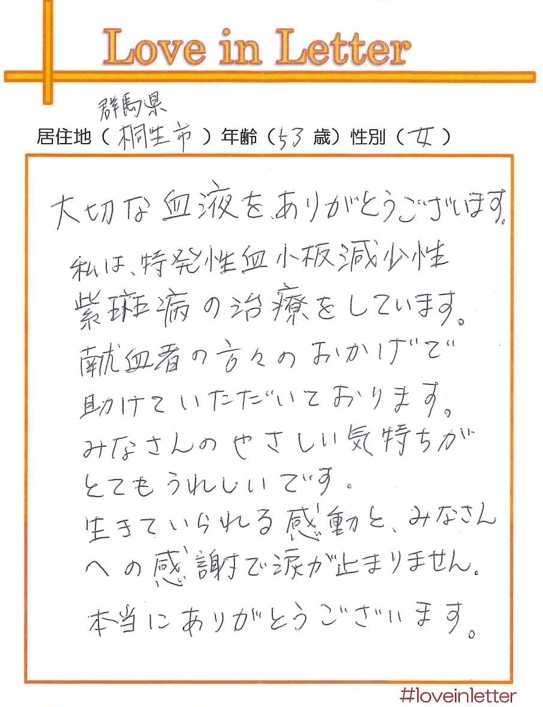 Love in Letter
群馬県
居住地（桐生市）年齢（53歳）性別（女）
大切な血液を、ありがとうございます。
私は、特発性血小板減少性
紫斑病の治療をしています。
献血者の方々のおかげで
助けていただいております。
みなさんのやさしい気持ちが
とてもうれしいです。
生きていられる感動と、みなさん
への感謝で涙が止まりません。
本当にありがとうございます。
#loveinletter